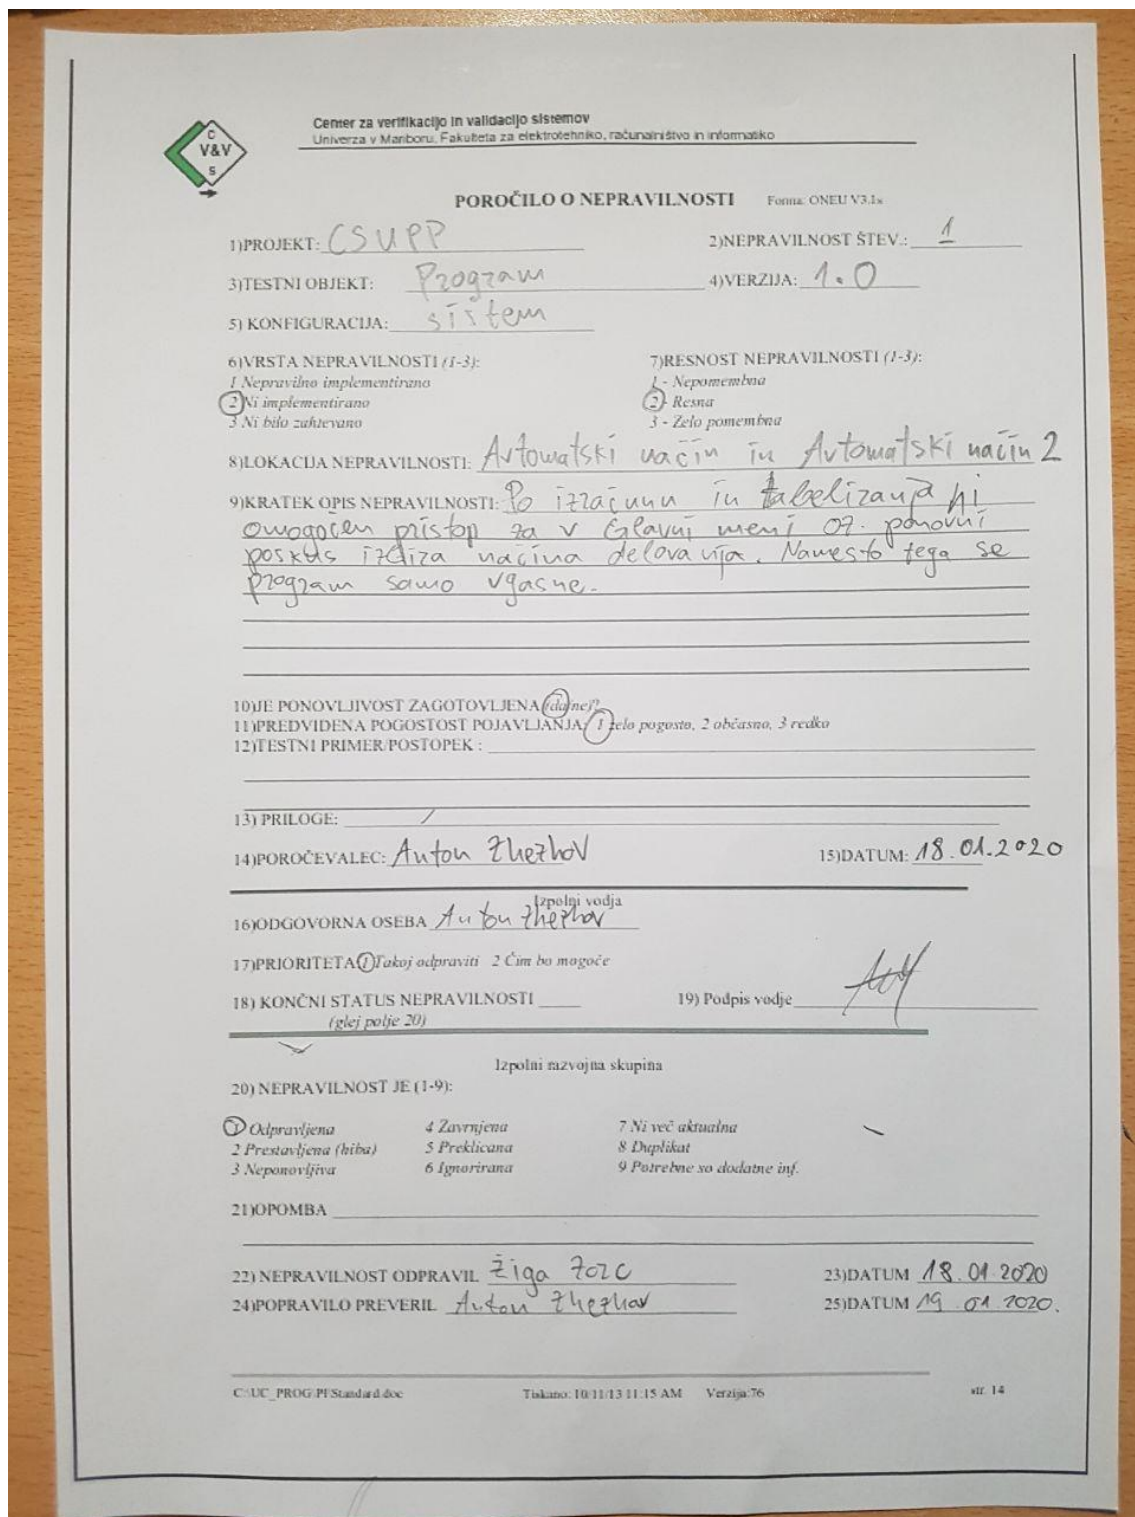 C
V&V
S
Center za verifikacijo in validacijo sistemov
Univerza v Mariboru, Fakulteta za elektrotehniko, računalništvo in informatiko
POROČILO O NEPRAVILNOSTI Forma: ONEU V3.1s
1)PROJEKT: CSUPP 2)NEPRAVILNOST ŠTEV.: 1
3)TESTNI OBJEKT: Program 4)VERZIJA: 1.0
5) KONFIGURACIJA: sistem
6)VRSTA NEPRAVILNOSTI (1-3): 7)RESNOST NEPRAVILNOSTI (1-3):
1 Nepravilno implementirano 1 - Nepomembna
2 Ni implementirano 2 - Resna
3 Ni bilo zahtevano 3 - Zelo pomembna
8)LOKACIJA NEPRAVILNOSTI: Avtomatski način in Avtomatski način 2
9)KRATEK OPIS NEPRAVILNOSTI: Po izračunu in tabeliranja ni
omogočen pristop za v Glavni meni oz. ponovni
poskus izbira načina delovanja. Namesto tega se
program samo vgasne.
10)JE PONOVLJIVOST ZAGOTOVLJENA (da/ne)?
11)PREDVIDENA POGOSTOST POJAVLJANJA: 1 zelo pogosto, 2 občasno, 3 redko
12)TESTNI PRIMER/POSTOPEK :
13) PRILOGE: /
14)POROČEVALEC: Anton Zhezhov 15)DATUM: 18.01.2020
Izpolni vodja
16)ODGOVORNA OSEBA Anton Zhezhov
17)PRIORITETA 1 Takoj odpraviti 2 Čim bo mogoče
18) KONČNI STATUS NEPRAVILNOSTI 19) Podpis vodje
(glej polje 20)
Izpolni razvojna skupina
20) NEPRAVILNOST JE (1-9):
1 Odpravljena 4 Zavrnjena 7 Ni več aktualna
2 Prestavljena (hiba) 5 Preklicana 8 Duplikat
3 Neponovljiva 6 Ignorirana 9 Potrebne so dodatne inf.
21)OPOMBA
22) NEPRAVILNOST ODPRAVIL Žiga Zorc 23)DATUM 18.01.2020
24)POPRAVILO PREVERIL Anton Zhezhov 25)DATUM 19.01.2020.
C:\UC_PROG\PI\Standard.doc Tiskano: 10/11/13 11:15 AM Verzija:76 str. 14